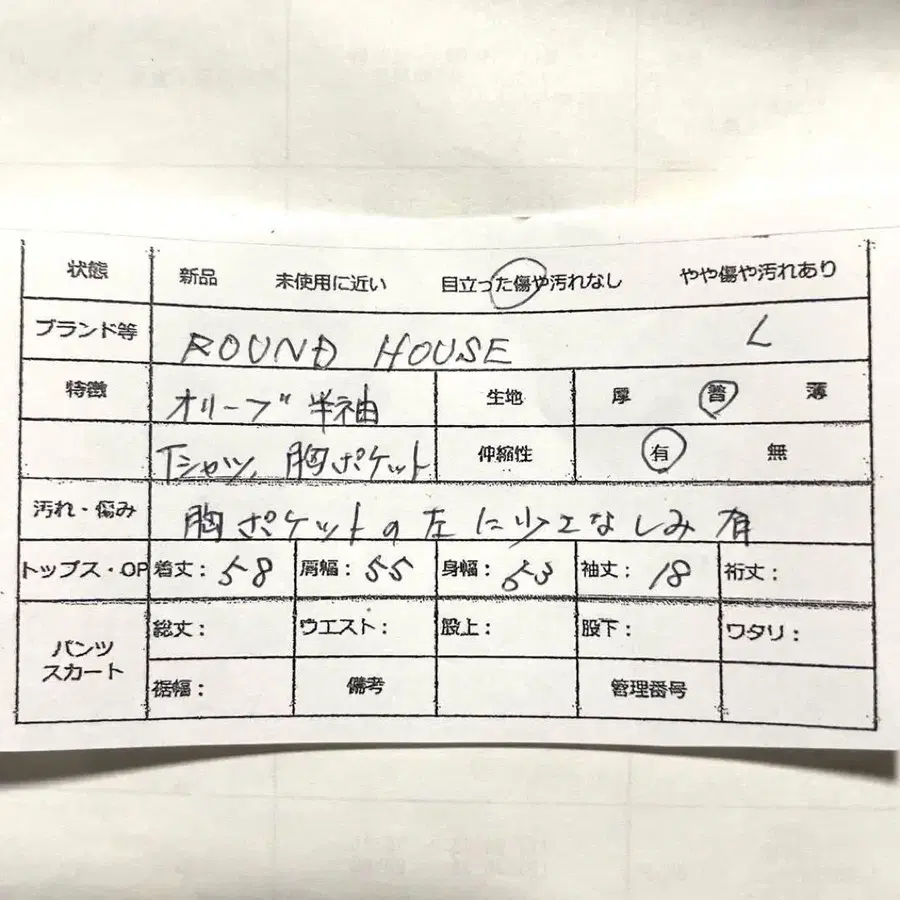 状態 新品 未使用に近い 目立った傷や汚れなし やや傷や汚れあり
ブランド等 ROUND HOUSE L
特徴 オリーブ 半袖 生地 厚 普 薄
Tシャツ、胸ポケット 伸縮性 有 無
汚れ・傷み 胸ポケットの左に小さなしみ有
トップス・OP 着丈:58 肩幅:55 身幅:53 袖丈:18 裄丈:
パンツ スカート 総丈: ウエスト: 股上: 股下: ワタリ:
裾幅: 備考 管理番号